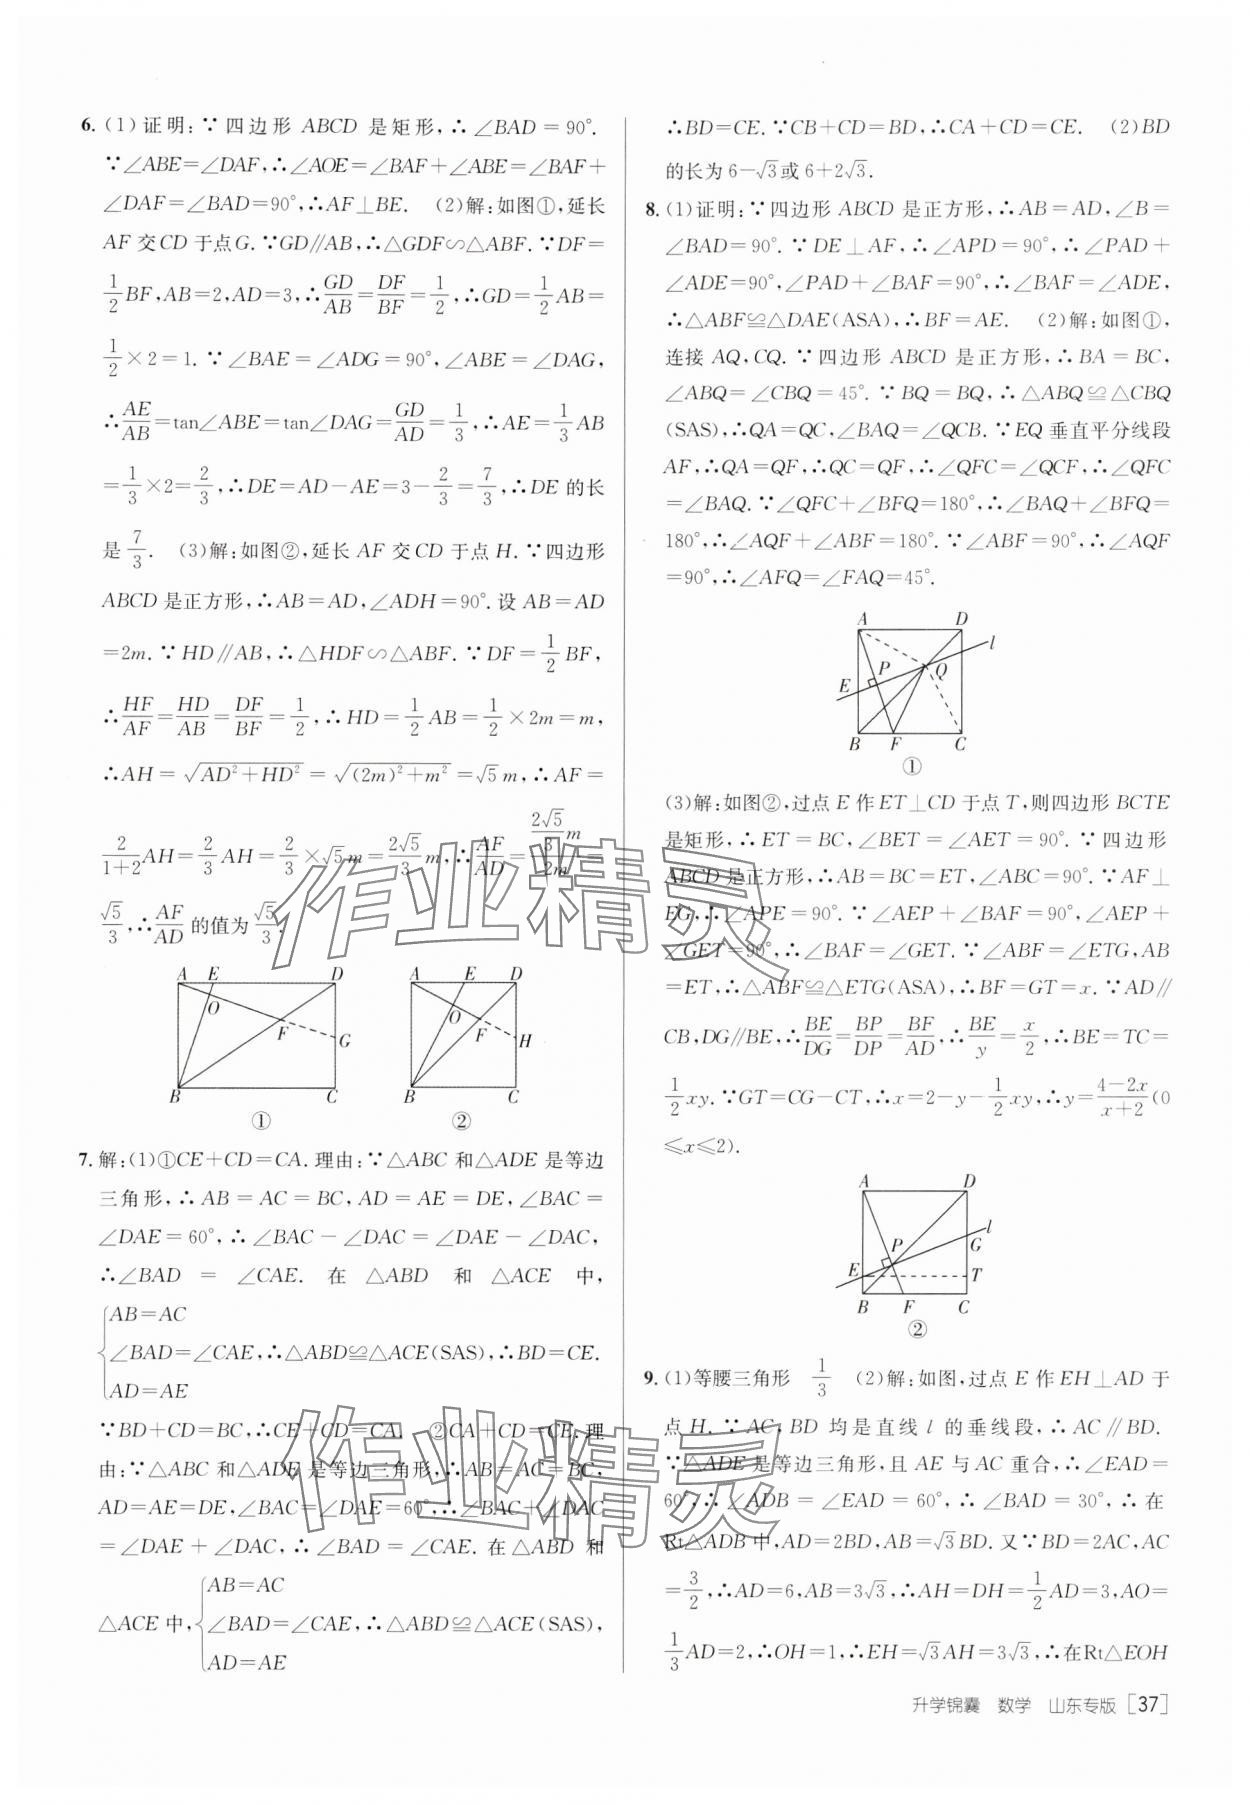 6. (1)证明:∵四边形 ABCD 是矩形,∴∠BAD=90°.
∵∠ABE=∠DAF,∴∠AOE=∠BAF+∠ABE=∠BAF+
∠DAF=∠BAD=90°,∴AF⊥BE. (2)解:如图①,延长
AF 交CD 于点G.∵GD∥AB,∴△GDF∽△ABF.∵DF=
1/2 BF,AB=2,AD=3,∴GD/AB=DF/BF=1/2,∴GD=1/2 AB=
1/2×2=1.∵∠BAE=∠ADG=90°,∠ABE=∠DAG,
∴AE/AB=tan∠ABE=tan∠DAG=GD/AD=1/3,∴AE=1/3 AB
=1/3×2=2/3,∴DE=AD-AE=3-2/3=7/3,∴DE 的长
是 7/3. (3)解:如图②,延长 AF 交CD 于点 H.∵四边形
ABCD 是正方形,∴AB=AD,∠ADH=90°.设 AB=AD
=2m.∵HD∥AB,∴△HDF∽△ABF.∵DF=1/2 BF,
∴HF/AF=HD/AB=DF/BF=1/2,∴HD=1/2 AB=1/2×2m=m,
∴AH=√(AD²+HD²)=√((2m)²+m²)=√5 m,∴AF=
2/(1+2) AH=2/3 AH=2/3×√5 m=2√5/3 m,∴AF/AD=(2√5/3 m)/2m=
√5/3,∴AF/AD 的值为 √5/3.
A E D O F G B C ①
A E D O F H B C ②
7. 解:(1)①CE+CD=CA.理由:∵△ABC 和△ADE 是等边
三角形,∴AB=AC=BC,AD=AE=DE,∠BAC=
∠DAE=60°,∴∠BAC-∠DAC=∠DAE-∠DAC,
∴∠BAD=∠CAE. 在△ABD 和△ACE 中,
AB=AC
∠BAD=∠CAE,∴△ABD≌△ACE(SAS),∴BD=CE.
AD=AE
∵BD+CD=BC,∴CE+CD=CA. ②CA+CD=CE.理
由:∵△ABC 和△ADE 是等边三角形,∴AB=AC=BC,
AD=AE=DE,∠BAC=∠DAE=60°,∴∠BAC+∠DAC
=∠DAE+∠DAC,∴∠BAD=∠CAE.在△ABD 和
AB=AC
△ACE 中,∠BAD=∠CAE,∴△ABD≌△ACE(SAS),
AD=AE
∴BD=CE.∵CB+CD=BD,∴CA+CD=CE. (2)BD
的长为 6-√3或 6+2√3.
8. (1)证明:∵四边形 ABCD 是正方形,∴AB=AD,∠B=
∠BAD=90°.∵DE⊥AF,∴∠APD=90°,∴∠PAD+
∠ADE=90°,∠PAD+∠BAF=90°,∴∠BAF=∠ADE,
∴△ABF≌△DAE(ASA),∴BF=AE. (2)解:如图①,
连接 AQ,CQ.∵四边形 ABCD 是正方形,∴BA=BC,
∠ABQ=∠CBQ=45°.∵BQ=BQ,∴△ABQ≌△CBQ
(SAS),∴QA=QC,∠BAQ=∠QCB.∵EQ 垂直平分线段
AF,∴QA=QF,∴QC=QF,∴∠QFC=∠QCF,∴∠QFC
=∠BAQ.∵∠QFC+∠BFQ=180°,∴∠BAQ+∠BFQ=
180°,∴∠AQF+∠ABF=180°.∵∠ABF=90°,∴∠AQF
=90°,∴∠AFQ=∠FAQ=45°.
A D l P Q E B F C
①
(3)解:如图②,过点 E 作ET⊥CD 于点 T,则四边形 BCTE
是矩形,∴ET=BC,∠BET=∠AET=90°.∵四边形
ABCD 是正方形,∴AB=BC=ET,∠ABC=90°.∵AF⊥
EG,∴∠APE=90°.∵∠AEP+∠BAF=90°,∠AEP+
∠GET=90°,∴∠BAF=∠GET.∵∠ABF=∠ETG,AB
=ET,∴△ABF≌△ETG(ASA),∴BF=GT=x.∵AD∥
CB,DG∥BE,∴BE/DG=BP/DP=BF/AD,∴BE/y=x/2,∴BE=TC=
1/2 xy.∵GT=CG-CT,∴x=2-y-1/2 xy,∴y=(4-2x)/(x+2)(0
≤x≤2).
A D l P G E T B F C
②
9. (1)等腰三角形 1/3 (2)解:如图,过点 E 作EH⊥AD 于
点 H.∵AC,BD 均是直线 l 的垂线段,∴AC∥BD.
∵△ADE 是等边三角形,且 AE 与 AC 重合,∴∠EAD=
60°,∴∠ADB=∠EAD=60°,∴∠BAD=30°,∴在
Rt△ADB 中,AD=2BD,AB=√3BD.又∵BD=2AC,AC
=3/2,∴AD=6,AB=3√3,∴AH=DH=1/2 AD=3,AO=
1/3 AD=2,∴OH=1,∴EH=√3AH=3√3,∴在Rt△EOH
升学锦囊 数学 山东专版 [37]
作业精灵
作业精灵